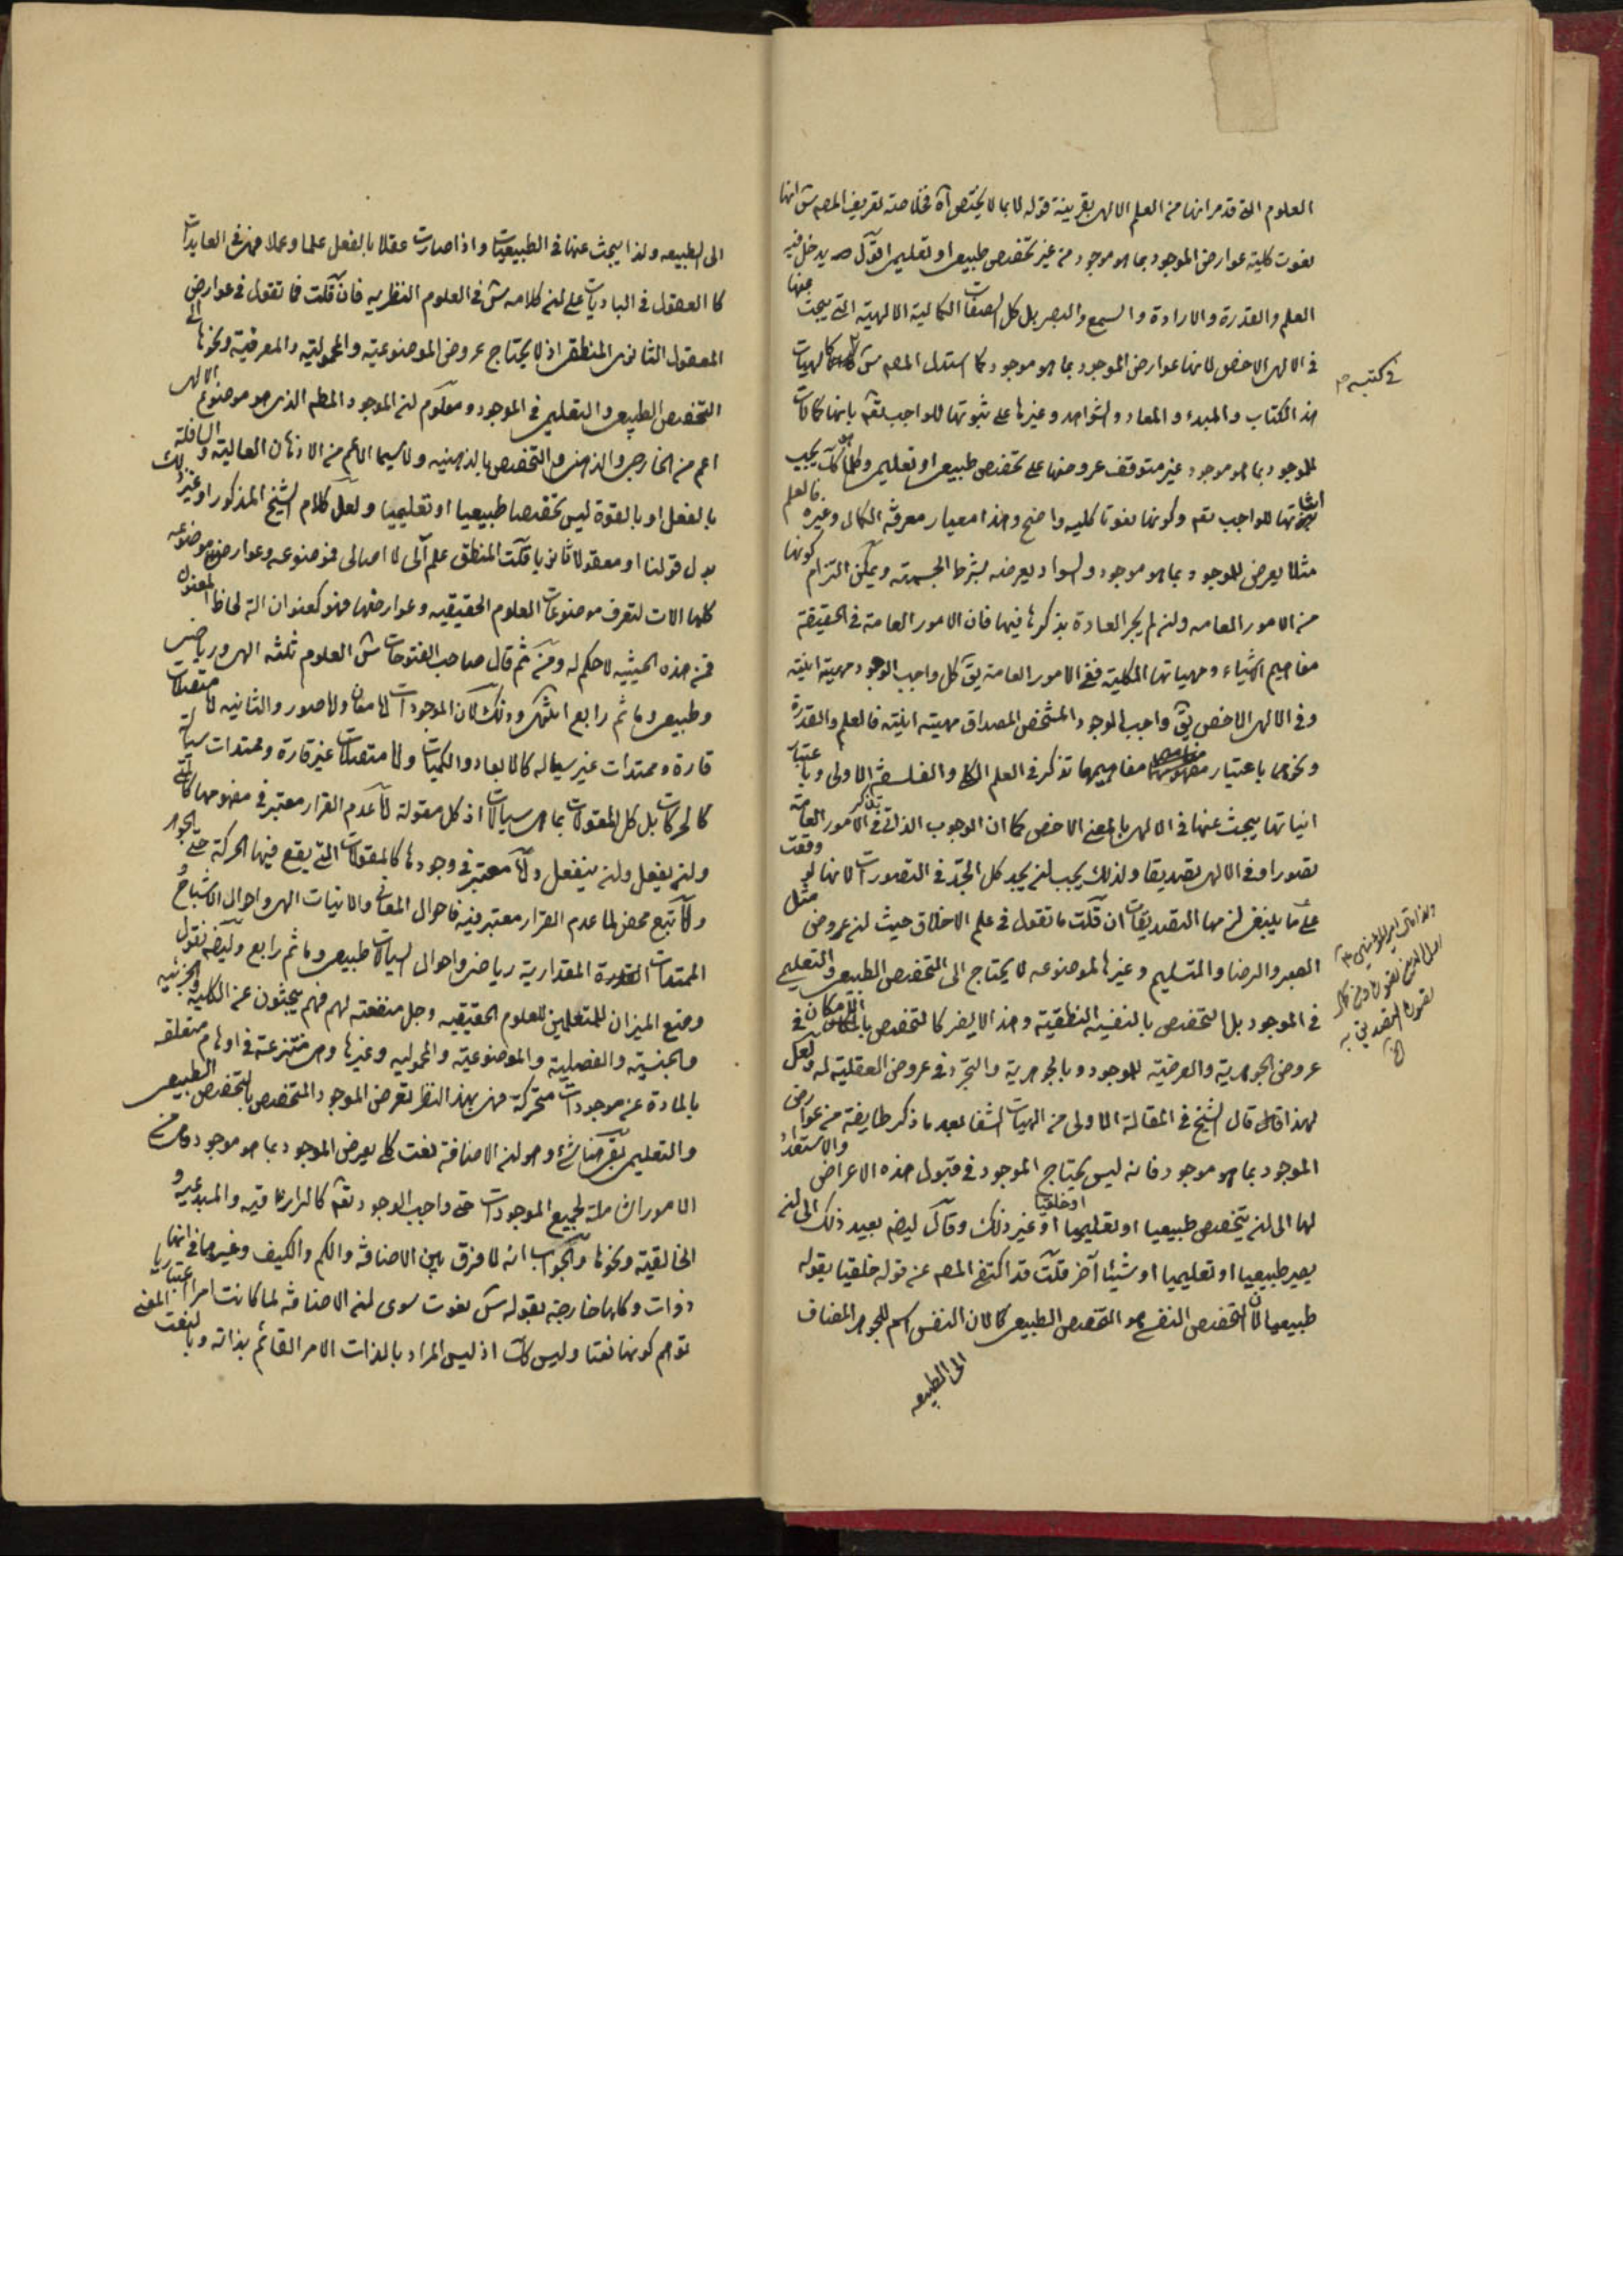 العلوم الة قد مر انها من العلم الالهى بقرينة قوله لا بما لا يختص آه فخلاصة تعريف المصه س انها
نعوت كلية عوارض الموجود بما هو موجود من غير تخصص طبيعى او تعليمى اقول يدخل فيه
العلم والقدرة والارادة والسمع والبصر بل كل الصفات الكمالية الالهية التى يبحث عنها
فى الالهى الاخص لانها عوارض الموجود بما هو موجود كما استدل المصه س فى كتبه كالهيات
هذا الكتاب والمبدء والمعاد والشواهد وغيرها على ثبوتها للواجب تعه بانها كمالات
للموجود بما هو موجود غير متوقف عروضها على تخصص طبيعى او تعليمى وكلما هو كك يجب
اثباتها للواجب تعه وكونها نعوتا كلية واضح وهذا معيار معرفة الكمال وغيره فالعلم
مثلا يعرض للموجود بما هو موجود والسواد يعرضه بشرط الجسمية ويمكن التزام كونها
من الامور العامه ولن لم يجر العادة بذكرها فيها فان الامور العامة فى الحقيقة
مفاهيم الاشياء ومهياتها الكلية ففى الامور العامة يق كل واجب الوجود مهيته انيته
وفى الالهى الاخص يق واجب الوجود المشخص المصداق مهيته انيته فالعلم والقدرة
ونحوهما باعتبار مفاهيمها تذكر فى العلم الكلى والفلسفة الاولى وباعتبار
انياتها يبحث عنها فى الالهى بالمعنى الاخص كما ان الوجوب الذاتى يذكر فى الامور العامة
تصورا وفى الالهى تصديقا ولذلك يجب لن يجد كل الجد فى التصورات لانها لو وقعت
على ما ينبغى لزمها التصديقات ان قلت ما تقول فى علم الاخلاق حيث لن عروض مثل
الصبر والرضا والتسليم وغيرها لموضوعه لا يحتاج الى التخصص الطبيعى والتعليمى
فى الموجود بل التخصص بالنفسية النطقية وهذا لا يضر كالتخصص بالامكان فى
عروض الجوهرية والعرضية للموجود وبالجوهرية والتجرد فى عروض العقلية له ولعل
لهذا قال الشيخ فى المقالة الاولى من الهيات الشفا بعد ما ذكر طايفة من عوارض
الموجود بما هو موجود فانه ليس يحتاج الموجود فى قبول هذه الاعراض والاستعداد
لها الى لن يتخصص طبيعيا او تعليميا او خلقيا او غير ذلك وقال ايضه بعيد ذلك الى لن
يصير طبيعيا او تعليميا او شيئا آخر قلت قد اكتفى المصه عن قوله خلقيا بقوله
طبيعيا لان التخصص النفسى هو التخصص الطبيعى كالان النفس اسم للجوهر المضاف
الى الطبيعه
فى كتبه
الى الطبيعه ولذا يبحث عنها فى الطبيعيات واذا صارت عقلا بالفعل علما وعملا فهى فى العايدات
كالعقول فى الباديات على لن كلامه س فى العلوم النظريه فان قلت فما تقول فى عوارض
المعقول الثانى المنطقى اذ لا يحتاج عروض الموضوعية والمحمولية والمعرفية ونحوها الى
التخصص الطبيعى والتعليمى فى الموجود ومعلوم لن الموجود المطه الذى هو موضوع الالهى
اعم من الخارجى والذهنى والتخصص بالذهنيه ولا سيما الاعم من الاذهان العالية والسافلة
بالفعل او بالقوة ليس تخصصا طبيعيا او تعليميا ولعل كلام الشيخ المذكور او غير ذلك
بدل قولنا او معقولا ثانيا قلت المنطق علم آلى لا اصالى فموضوعه وعوارض موضوعه
كلها الات لتعرف موضوعات العلوم الحقيقيه وعوارضها فهو كعنوان الة لحاظ المعنون
فمن هذه الحيثيه لا حكم له ومن ثم قال صاحب الفتوحات س العلوم ثلثه الهى ورياضى
وطبيعى وما ثم رابع انتهى وذلك لان الموجودات اما معان ولا صور والثانيه اما متصلات
قارة وممتدات غير سيالة كالابعاد والكميات واما متصلات غير قارة وممتدات سيالة
كالحركات بل كل المقولات بما هى سيالات اذ كل مقولة اما عدم القرار معتبر فى مفهومها كمتى
ولن يفعل ولن ينفعل واما معتبر فى وجودها كالمقولات التى يقع فيها الحركة حتى الجوهر
واما تبع محض لما عدم القرار معتبر فيه فاحوال المعانى والانيات الهى واحوال الاشباح
الممتدات القارة المقدارية رياضى واحوال السيالات طبيعى وما ثم رابع وايضه نقول
وضع الميزان للمتعلمين للعلوم الحقيقيه وجل منفعته لهم فهم يبحثون عن الكلية والجزئيه
والجنسية والفصلية والموضوعية والمحموليه وغيرها وهى منتزعة فى اوهام متعلقه
بالمادة عن موجودات متحركة فهى بهذا النظر تعرض الموجود المتخصص بالتخصص الطبيعى
والتعليمى بقى هنا شئ وهو لن الاضافة نعت كلى يعرض الموجود بما هو موجود وهى من
الامور الشاملة لجميع الموجودات حتى واجب الوجود تعه كالرازقية والمبدعيه و
الخالقية ونحوها والجواب انه لا فرق بين الاضافة والكم والكيف وغيرهما فى انها
ذوات وكلها خارجة بقوله س نعوت سوى لن الاضافة لما كانت امرا اعتباريا
توهم كونها نعتا وليس كك اذ ليس المراد بالذات الامر القائم بذاته وبالنعت المعنى